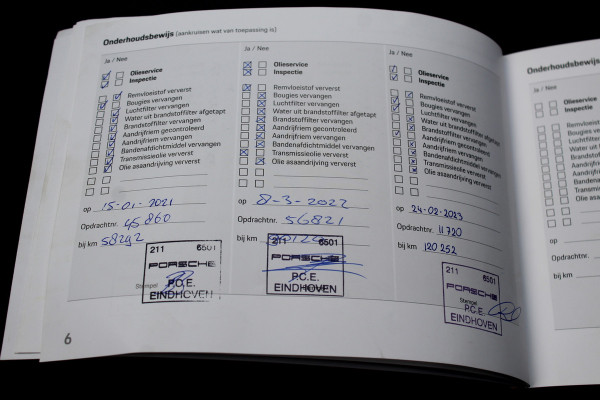 Onderhoudsbewijs (aankruisen wat van toepassing is)
Ja / Nee
Olieservice
Inspectie
Remvloeistof ververst
Bougies vervangen
Luchtfilter vervangen
Water uit brandstoffilter afgetapt
Brandstoffilter vervangen
Aandrijfriem gecontroleerd
Aandrijfriem vervangen
Bandenafdichtmiddel vervangen
Transmissieolie ververst
Olie asaandrijving ververst
op 15-01-2021
Opdrachtnr. 45860
bij km 58292
211 6501
PORSCHE
Stempel P.C.E.
EINDHOVEN
Ja / Nee
Olieservice
Inspectie
Remvloeistof ververst
Bougies vervangen
Luchtfilter vervangen
Water uit brandstoffilter afgetapt
Brandstoffilter vervangen
Aandrijfriem gecontroleerd
Aandrijfriem vervangen
Bandenafdichtmiddel vervangen
Transmissieolie ververst
Olie asaandrijving ververst
op 8-3-2022
Opdrachtnr. 56821
bij km
211 6501
PORSCHE
P.C.E.
EINDHOVEN
Ja / Nee
Olieservice
Inspectie
Remvloeistof ververst
Bougies vervangen
Luchtfilter vervangen
Water uit brandstoffilter afgetapt
Brandstoffilter vervangen
Aandrijfriem gecontroleerd
Aandrijfriem vervangen
Bandenafdichtmiddel vervangen
Transmissieolie ververst
Olie asaandrijving ververst
op 24-02-2023
Opdrachtnr. 11720
bij km 120 252
211 6501
PORSCHE
Stempel P.C.E.
EINDHOVEN
6
Onderhoudsbewijs
Ja / Nee
Olieservice
Inspectie
op
Opdrachtnr.
bij km